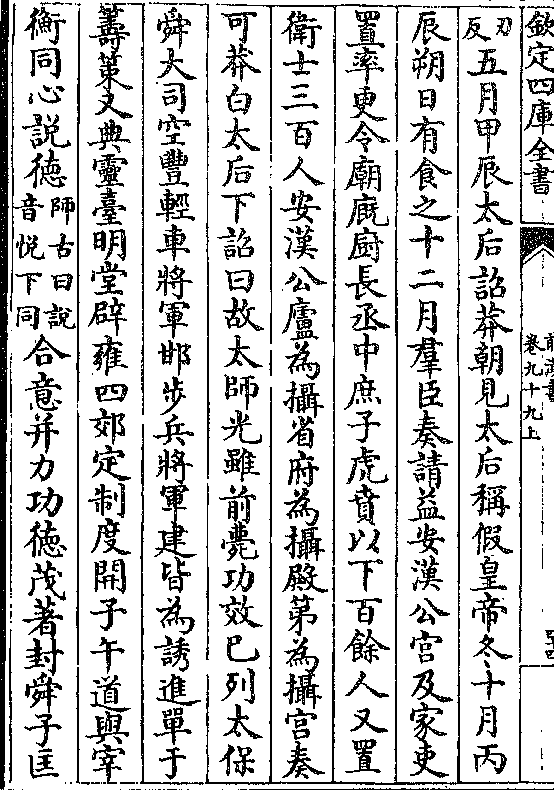 欽定四庫全書
卷九十九上
刃反五月甲辰太后詔莽朝見太后稱假皇帝冬十月丙
辰朔日有食之十二月羣臣奏請益安漢公宮及家吏
置率更令廟廐厨長丞中庶子虎賁以下百餘人又置
衛士三百人安漢公廬為攝省府為攝殿第為攝宮奏
可莽白太后下詔曰故太師光雖前薨功效已列太保
舜大司空豐輕車將軍邯步兵將軍建皆為誘進單于
籌策又典靈臺明堂辟雍四郊定制度開子午道與宰
衡同心説德師古曰説音悦下同合意并力功德茂著封舜子匡